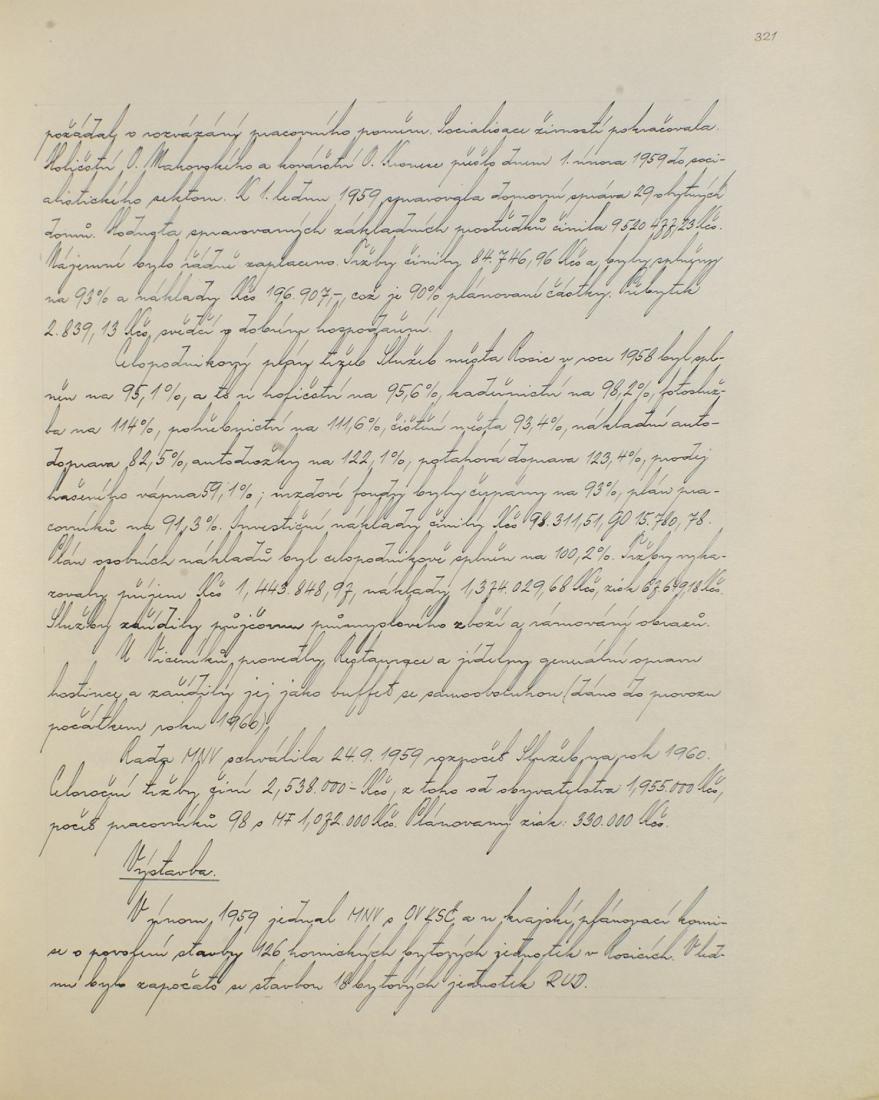 321
požádal o rozvázání pracovního poměru. Socialisace živností pokračovala.
Holičství O. Makovského a kovářství O. Kronese přešlo dnem 1. února 1959 do soci-
alistického sektoru. K 1. lednu 1959 spravovala domovní správa 29 obytných
domů. Hodnota spravovaných základních prostředků činila 9520 477,23 Kčs.
Nájemné bylo řádně zaplaceno. Tržby činily 84.746,96 Kčs a byly splněny
na 93% a náklady Kčs 196.907,-, což je 90% plánované částky. Přebytek
2.839,13 Kčs svědčí o dobrém hospodaření.
Celopodnikový plán tržeb Služeb města Rosic v roce 1958 byl spl-
něn na 95,1%, a to u holičství na 95,6%, kadeřnictví na 98,2%, fotosluž-
ba na 114%, pohřebnictví na 111,6%, čištění města 93,4%, nákladní auto-
doprava 82,5%, autodrožky na 122,1%, potahová doprava 123,4%, prodej
hašeného vápna 59,1%; mzdové fondy byly čerpány na 93%, plán pra-
covníků na 91,3%. Investiční náklady činily Kčs 98.311,51, GO 15.780,78.
Plán osobních nákladů byl celopodnikově splněn na 100,2%. Tržby vyka-
zovaly příjem Kčs 1,443.848,97, náklady 1,374.029,68 Kčs, zisk Kčs.
Služby zřídily půjčovnu průmyslového zboží a rámování obrazů.
U Viceníků provedly Restaurace a jídelny generální opravu
hostince a zařídily jej jako buffet se samoobsluhou (dáno do provozu
počátkem roku 1960).
Rada MNV schválila 24.9. 1959 rozpočet Služeb na rok 1960.
Celoroční tržby činí 2,538.000.- Kčs, z toho od obyvatelstva 1,955.000 Kčs,
počet pracovníků 98 s MF 1,072.000 Kčs. Plánovaný zisk: 330.000 Kčs.
Výstavba.
V únoru 1959 jednal MNV s OV KSČ a v krajské plánovací komi-
se o povolení stavby 126 hornických bytových jednotek v Rosicích. V led-
nu bylo započato se stavbou 18 bytových jednotek RUD.